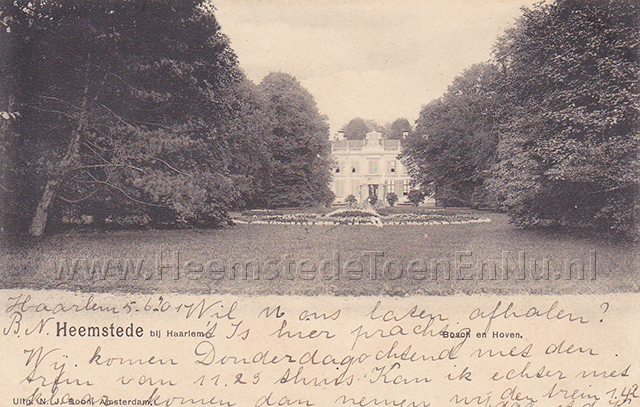 www.HeemstedeToenEnNu.nl
Haarlem 5.6.01 Wil u ons laten afhalen?
B.N Heemstede bij Haarlem. 't Is hier prachtig Bosch en Hoven.
Wij komen Donderdagochtend met den
trein van 11.23 thuis. Kan ik echter met
komen dan nemen wij den trein 1.48
Uitg. N. J. Boon, Amsterdam.